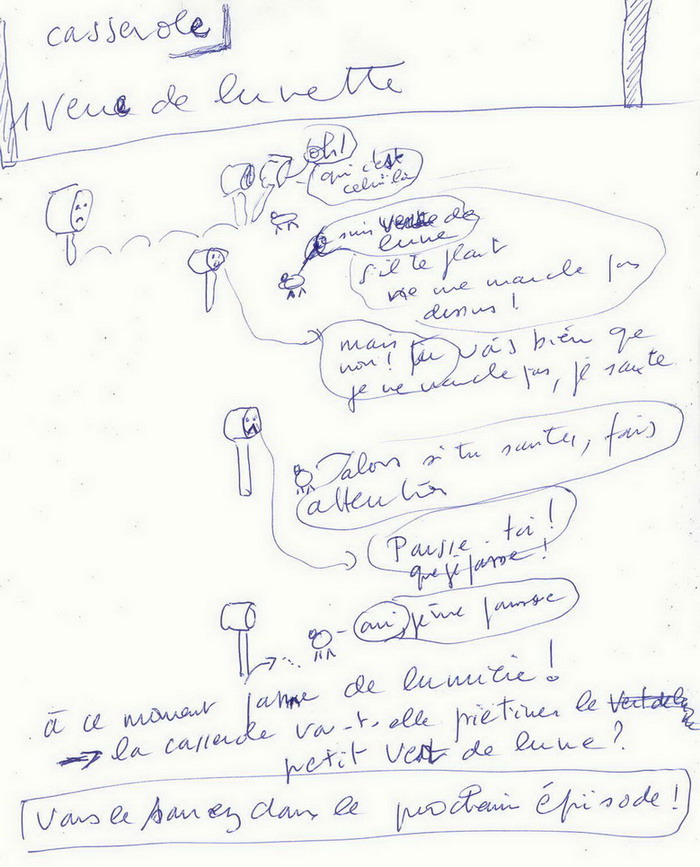 casserole
Vert de lunette
oh!
qui c'est
celui là
suis vert de
lune
s'il te plait
ne me marche pas
dessus!
mais
non! tu vois bien que
je ne marche pas, je saute
alors si tu sautes, fais
attention
Pousse-toi!
que je passe!
oui, je me pousse
à ce moment panne de lumière!
la casserole va-t-elle piétiner le
petit Vert de lune?
Vous le saurez dans le prochain épisode!